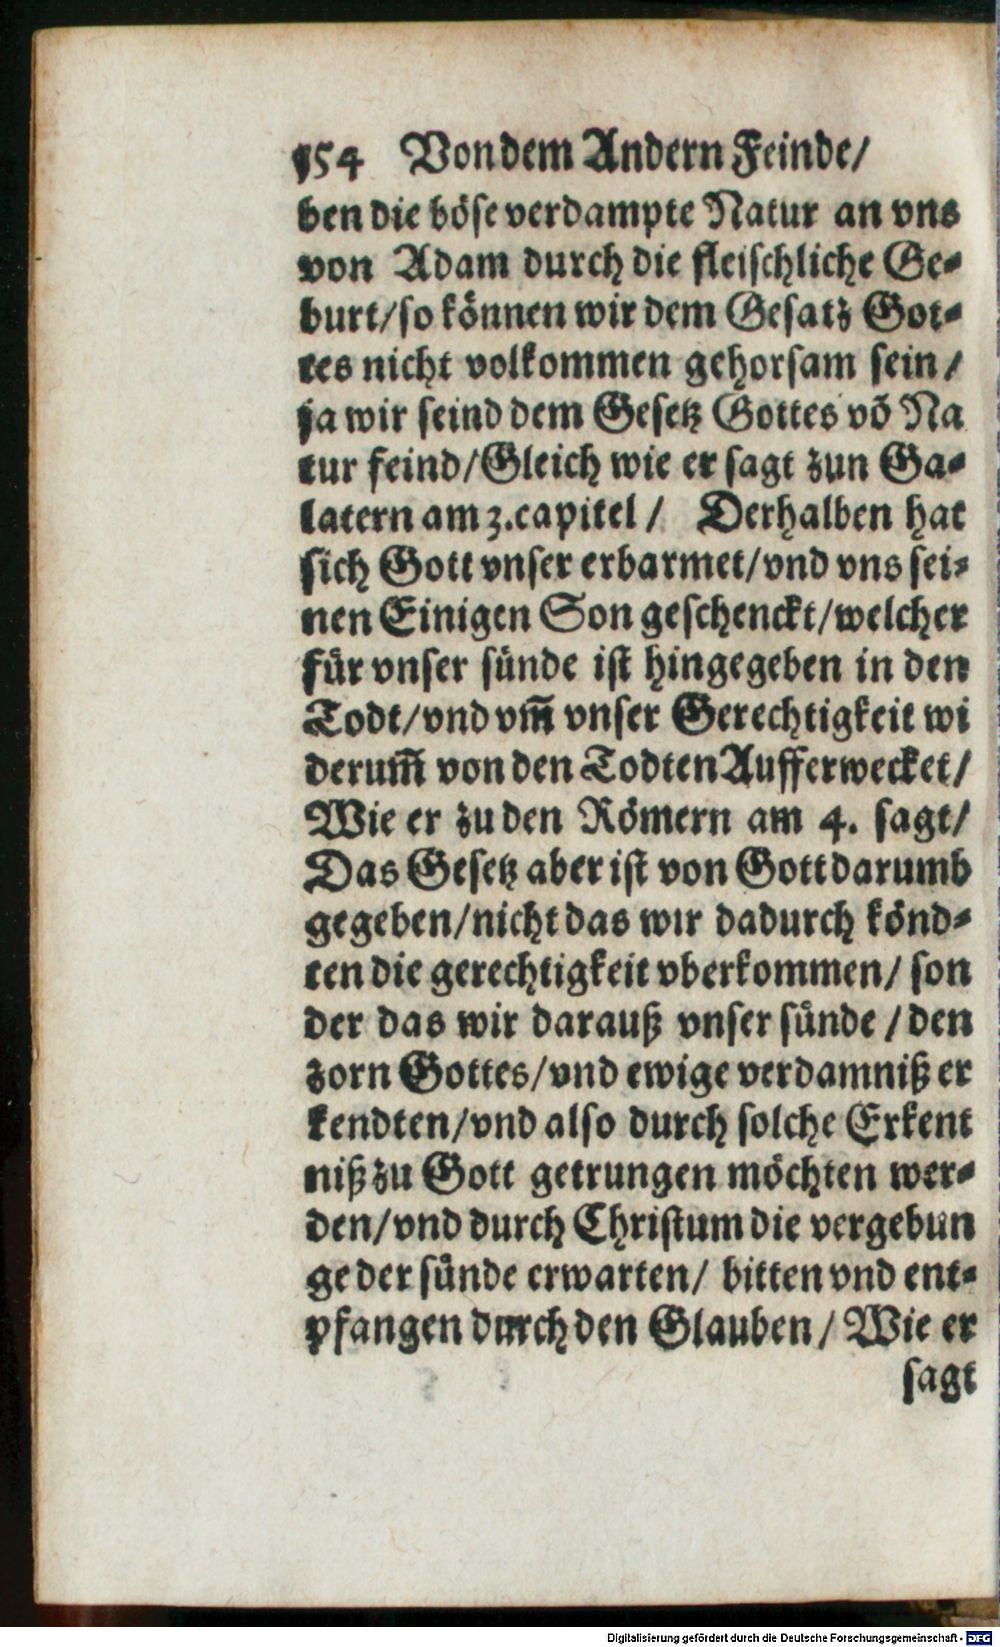 154 Von dem Andern Feinde/
ben die böse verdampte Natur an vns
von Adam durch die fleischliche Ge-
burt/so können wir dem Gesatz Got-
tes nicht volkommen gehorsam sein/
ja wir seind dem Gesetz Gottes võ Na
tur feind/Gleich wie er sagt zun Ga-
latern am 3.capitel/ Derhalben hat
sich Gott vnser erbarmet/vnd vns sei-
nen Einigen Son geschenckt/welcher
für vnser sünde ist hingegeben in den
Todt/vnd vm̃ vnser Gerechtigkeit wi
derum̃ von den Todten Aufferwecket/
Wie er zu den Römern am 4. sagt/
Das Gesetz aber ist von Gott darumb
gegeben/nicht das wir dadurch könd-
ten die gerechtigkeit vberkommen/ son
der das wir darauß vnser sünde/den
zorn Gottes/vnd ewige verdamniß er
kendten/vnd also durch solche Erkent
niß zu Gott getrungen möchten wer-
den/vnd durch Christum die vergebun
ge der sünde erwarten/ bitten vnd ent-
pfangen durch den Glauben/ Wie er
sagt
Digitalisierung gefördert durch die Deutsche Forschungsgemeinschaft - DFG